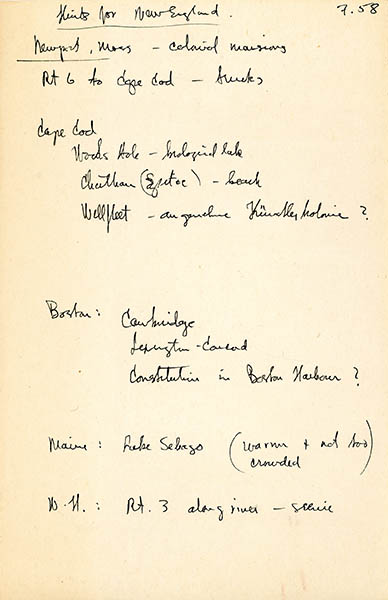 Hints for New England. 7.58
Newport, Mass - colonial mansions
Rt 6 to Cape Cod - trucks
Cape Cod
Woods Hole - biological lab
Chatham ( ) - beach
Wellfleet - Künstlerkolonie ?
Boston: Cambridge
Lexington - Concord
Constitution in Boston Harbour ?
Maine: Lake Sebago (warm & not too
crowded
N.H.: Rt. 3 along river - scenic